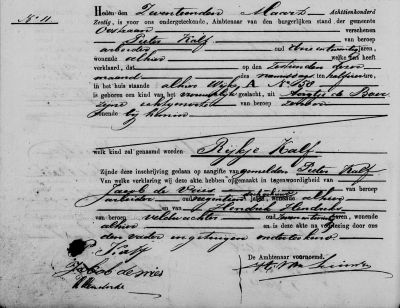 No 11.
Heden den Zeventienden Maart Achttienhonderd
Zestig, is voor ons ondergeteekende, Ambtenaar van den burgerlijken stand der gemeente
Oostzaan verschenen
Pieter Kalf van beroep
arbeider oud jaren,
wonende alhier welke heeft
verklaard, dat op den dezer
maand des namiddags ten half vier ure,
in het huis staande alhier Wijk No 150
is geboren een kind van het vrouwelijk geslacht, uit Aagtje de Boer
zijne echtgenoote van beroep zonder
wonende bij hem
welk kind zal genaamd worden Rijkje Kalf
Zijnde deze inschrijving gedaan op aangifte van gemelden Pieter Kalf
Van welke verklaring wij deze akte hebben opgemaakt in tegenwoordigheid van
Jacob de Vries van beroep
arbeider oud jaren, wonende alhier
en van Hendrik Hendriks
van beroep veldwachter oud jaren, wonende
alhier en is deze akte na voorlezing door ons
den vader en getuigen onderteekend
P Kalf
De Ambtenaar voornoemd,
Jakob de vries
H Hendriks